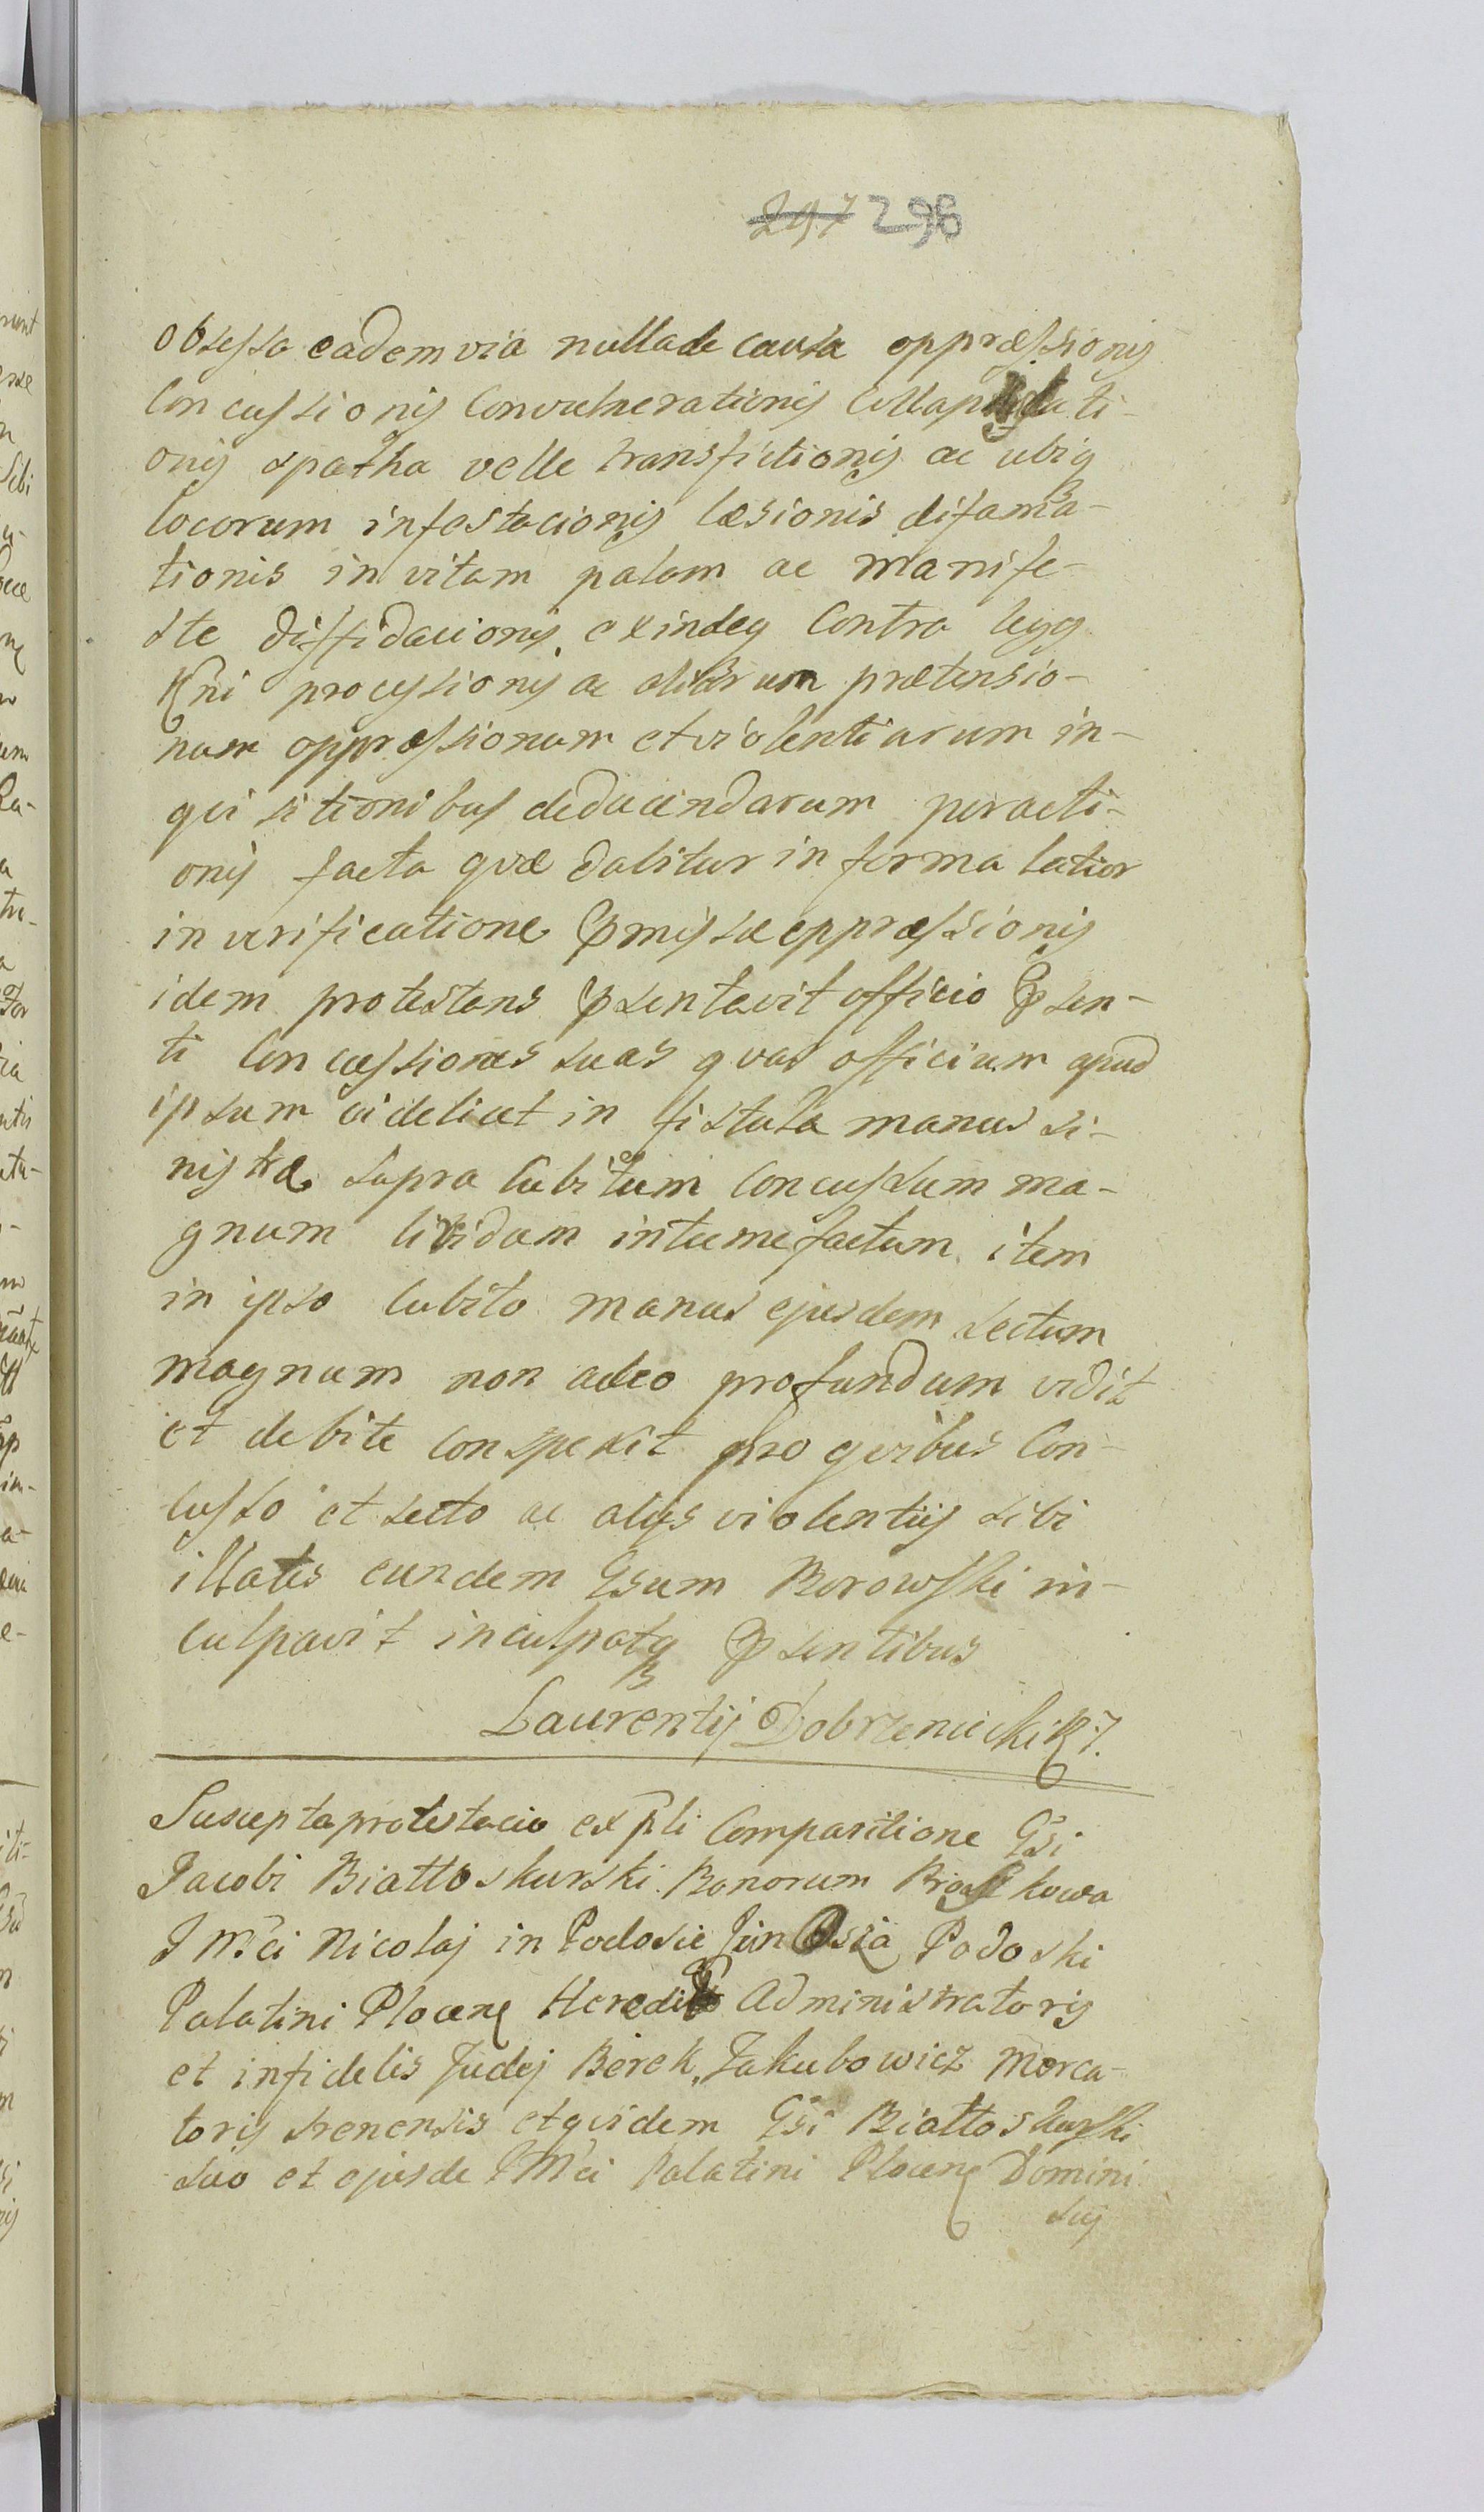 297 298
obsessa eadem via nulla de causa oppræssionis
Concussionis Convulnerationis Collapidati-
onis spatha velle transfictionis ac ubiq
locorum infestacionis læsionis difama-
tionis in vitam palam ac manife-
ste diffidacionis exindeq Contra leges
Rñi processionis ac aliarum prætensio-
num oppræssionum et violentiarum in-
qvisitionibus deducendarum peracti-
onis facta qvæ dabitur in forma latior
in verificatione pmissæ oppræssionis
idem protestans psentavit officio psen-
ti Concussiones suas qvas officium apud
ipsum videlicet in fistula manus si-
nistræ supra Cubitum Concussum ma-
gnum lividum intumefactum item
in ipso Cubito manus ejusdem sectum
magnum non adeo profundum vidit
et debite conspexit pro qvibus Con-
cusso et secto ac alijs violentijs sibi
illatis eundem Gsum Borowski in-
culpavit inculpatq psentibus
Laurentij Dobrzeniecki
Suscepta protestacio ex pli Comparitione Gsi
Jacobi Białłoskurski Bonorum
J Mci Nicolaj in Podosie Junosza Podoski
Palatini Plocen Heredit Administratoris
et infidelis Judej Berek Jakubowicz merca-
toris srenensis et qvidem Gsi Białłoskurski
suo et ejusde J Mci Palatini Plocen Domini
sui